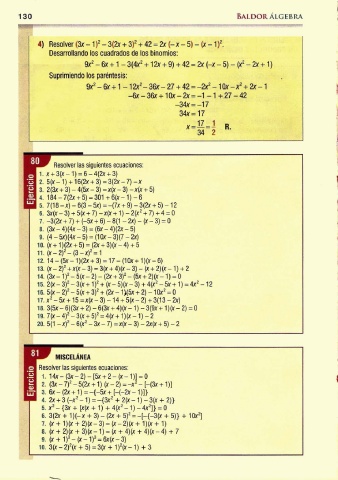 130
BALDOR ÁLGEBRA
4) Resolver (3x − 1)² − 3(2x + 3)² + 42 = 2x (−x − 5) − (x − 1)².
Desarrollando los cuadrados de los binomios:
9x² − 6x + 1 − 3(4x² + 12x + 9) + 42 = 2x (−x − 5) − (x² − 2x + 1)
Suprimiendo los paréntesis:
9x² − 6x + 1 − 12x² − 36x − 27 + 42 = −2x² − 10x − x² + 2x − 1
−6x − 36x + 10x − 2x = −1 − 1 + 27 − 42
−34x = −17
34x = 17
x = 17/34 = 1/2 R.
80
Ejercicio
Resolver las siguientes ecuaciones:
1. x + 3(x − 1) = 6 − 4(2x + 3)
2. 5(x − 1) + 16(2x + 3) = 3(2x − 7) − x
3. 2(3x + 3) − 4(5x − 3) = x(x − 3) − x(x + 5)
4. 184 − 7(2x + 5) = 301 + 6(x − 1) − 6
5. 7(18 − x) − 6(3 − 5x) = −(7x + 9) − 3(2x + 5) − 12
6. 3x(x − 3) + 5(x + 7) − x(x + 1) − 2(x² + 7) + 4 = 0
7. −3(2x + 7) + (−5x + 6) − 8(1 − 2x) − (x − 3) = 0
8. (3x − 4)(4x − 3) = (6x − 4)(2x − 5)
9. (4 − 5x)(4x − 5) = (10x − 3)(7 − 2x)
10. (x + 1)(2x + 5) = (2x + 3)(x − 4) + 5
11. (x − 2)² − (3 − x)² = 1
12. 14 − (5x − 1)(2x + 3) = 17 − (10x + 1)(x − 6)
13. (x − 2)² + x(x − 3) = 3(x + 4)(x − 3) − (x + 2)(x − 1) + 2
14. (3x − 1)² − 5(x − 2) − (2x + 3)² − (5x + 2)(x − 1) = 0
15. 2(x − 3)² − 3(x + 1)² + (x − 5)(x − 3) + 4(x² − 5x + 1) = 4x² − 12
16. 5(x − 2)² − 5(x + 3)² + (2x − 1)(5x + 2) − 10x² = 0
17. x² − 5x + 15 = x(x − 3) − 14 + 5(x − 2) + 3(13 − 2x)
18. 3(5x − 6)(3x + 2) − 6(3x + 4)(x − 1) − 3(9x + 1)(x − 2) = 0
19. 7(x − 4)² − 3(x + 5)² = 4(x + 1)(x − 1) − 2
20. 5(1 − x)² − 6(x² − 3x − 7) = x(x − 3) − 2x(x + 5) − 2
81
Ejercicio
MISCELÁNEA
Resolver las siguientes ecuaciones:
1. 14x − (3x − 2) − [5x + 2 − (x − 1)] = 0
2. (3x − 7)² − 5(2x + 1) (x − 2) = −x² − [−(3x + 1)]
3. 6x − (2x + 1) = −{−5x + [−(−2x − 1)]}
4. 2x + 3 (−x² − 1) = −{3x² + 2(x − 1) − 3(x + 2)}
5. x² − {3x + [x(x + 1) + 4(x² − 1) − 4x²]} = 0
6. 3(2x + 1)(−x + 3) − (2x + 5)² = −[−{−3(x + 5)} + 10x²]
7. (x + 1)(x + 2)(x − 3) = (x − 2)(x + 1)(x + 1)
8. (x + 2)(x + 3)(x − 1) = (x + 4)(x + 4)(x − 4) + 7
9. (x + 1)³ − (x − 1)³ = 6x(x − 3)
10. 3(x − 2)²(x + 5) = 3(x + 1)²(x − 1) + 3